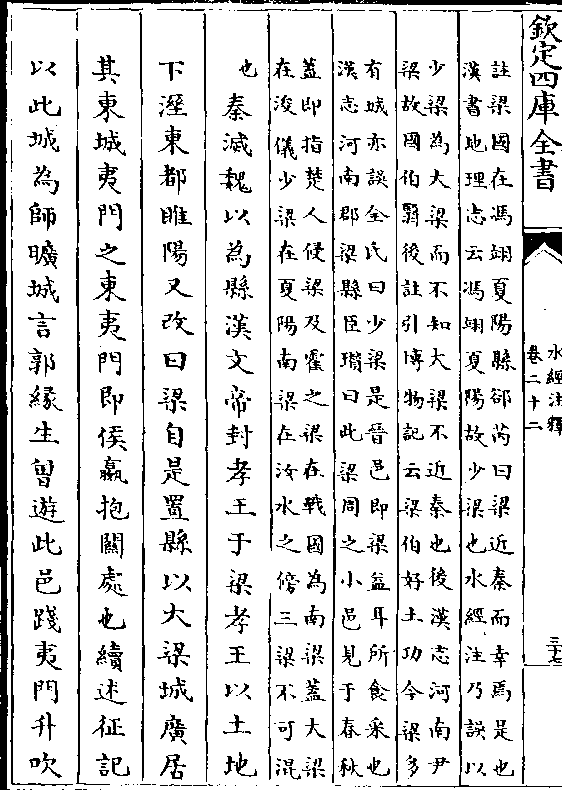 欽定四庫全書
水經注釋
卷二十二
三十七
註梁國在馮翊夏陽縣郤芮曰梁近秦而幸焉是也
漢書地理志云馮翊夏陽故少梁也水經注乃誤以
少梁為大梁而不知大梁不近秦也後漢志河南尹
梁故國伯翳後註引博物記云梁伯好土功今梁多
有城亦誤全氏曰少梁是晉邑即梁益耳所食采也
漢志河南郡梁縣臣瓚曰此梁周之小邑見于春秋
蓋即指楚人侵梁及霍之梁在戰國為南梁蓋大梁
在浚儀少梁在夏陽南梁在汝水之傍三梁不可混
也
秦滅魏以為縣漢文帝封孝王于梁孝王以土地
下溼東都睢陽又改曰梁自是置縣以大梁城廣居
其東城夷門之東夷門即侯嬴抱關處也續述征記
以此城為師曠城言郭緣生曽遊此邑踐夷門升吹